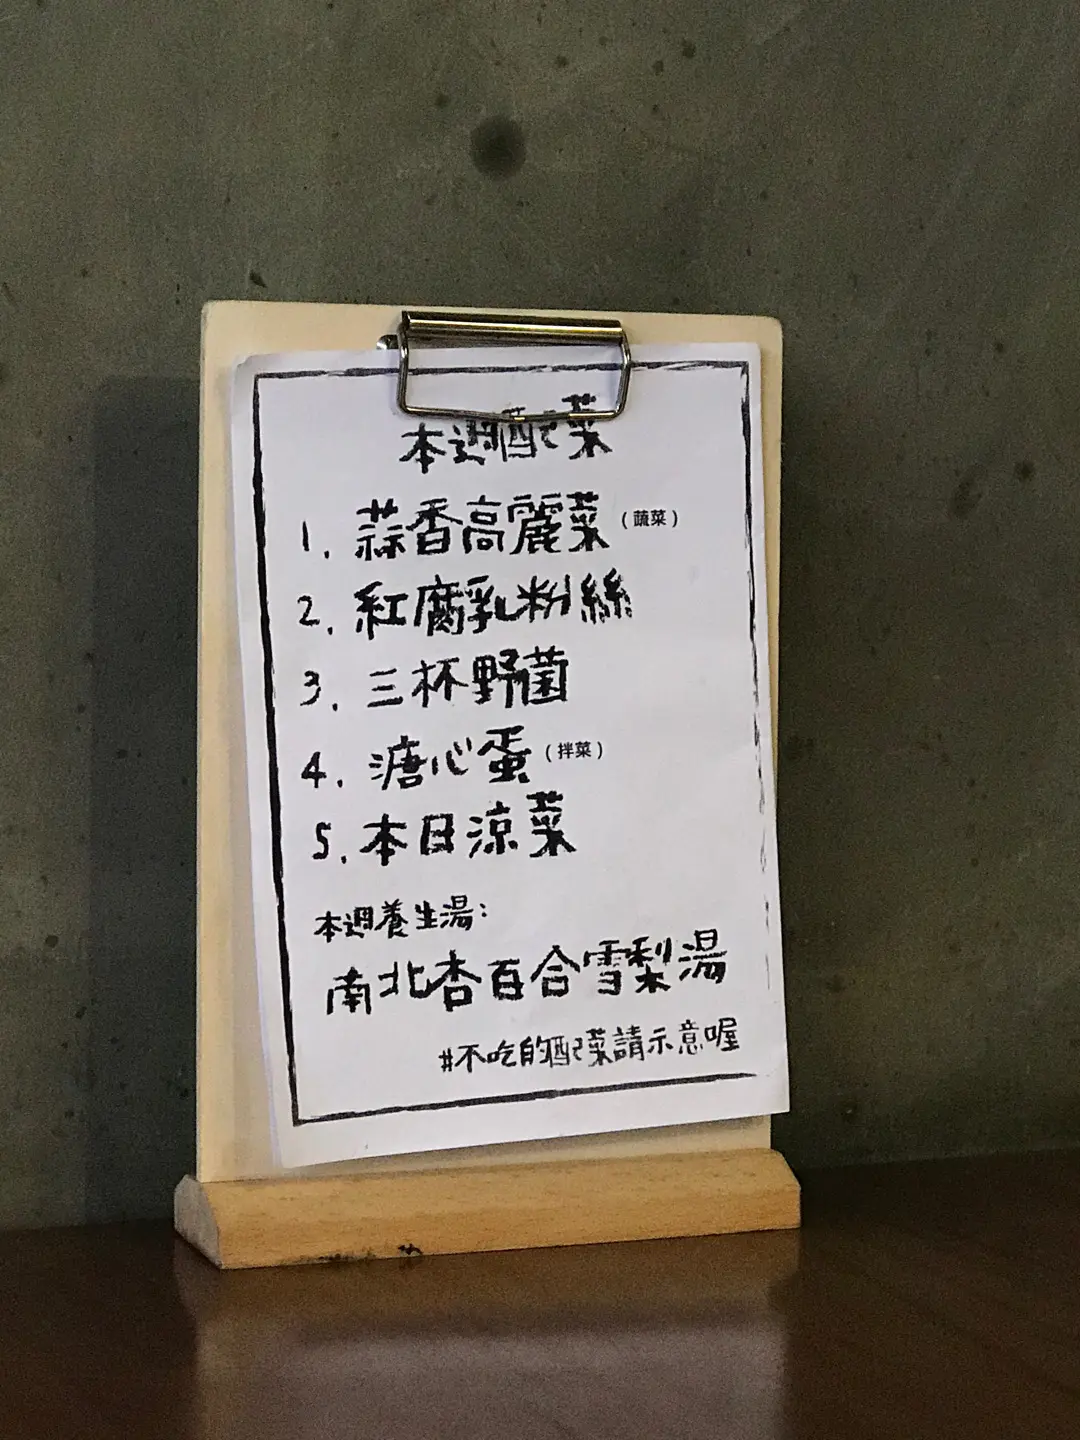 本週配菜
1. 蒜香高麗菜(蔬菜)
2. 紅腐乳粉絲
3. 三杯野菌
4. 溏心蛋(拌菜)
5. 本日涼菜
本週養生湯:
南北杏百合雪梨湯
#不吃的配菜請示意喔